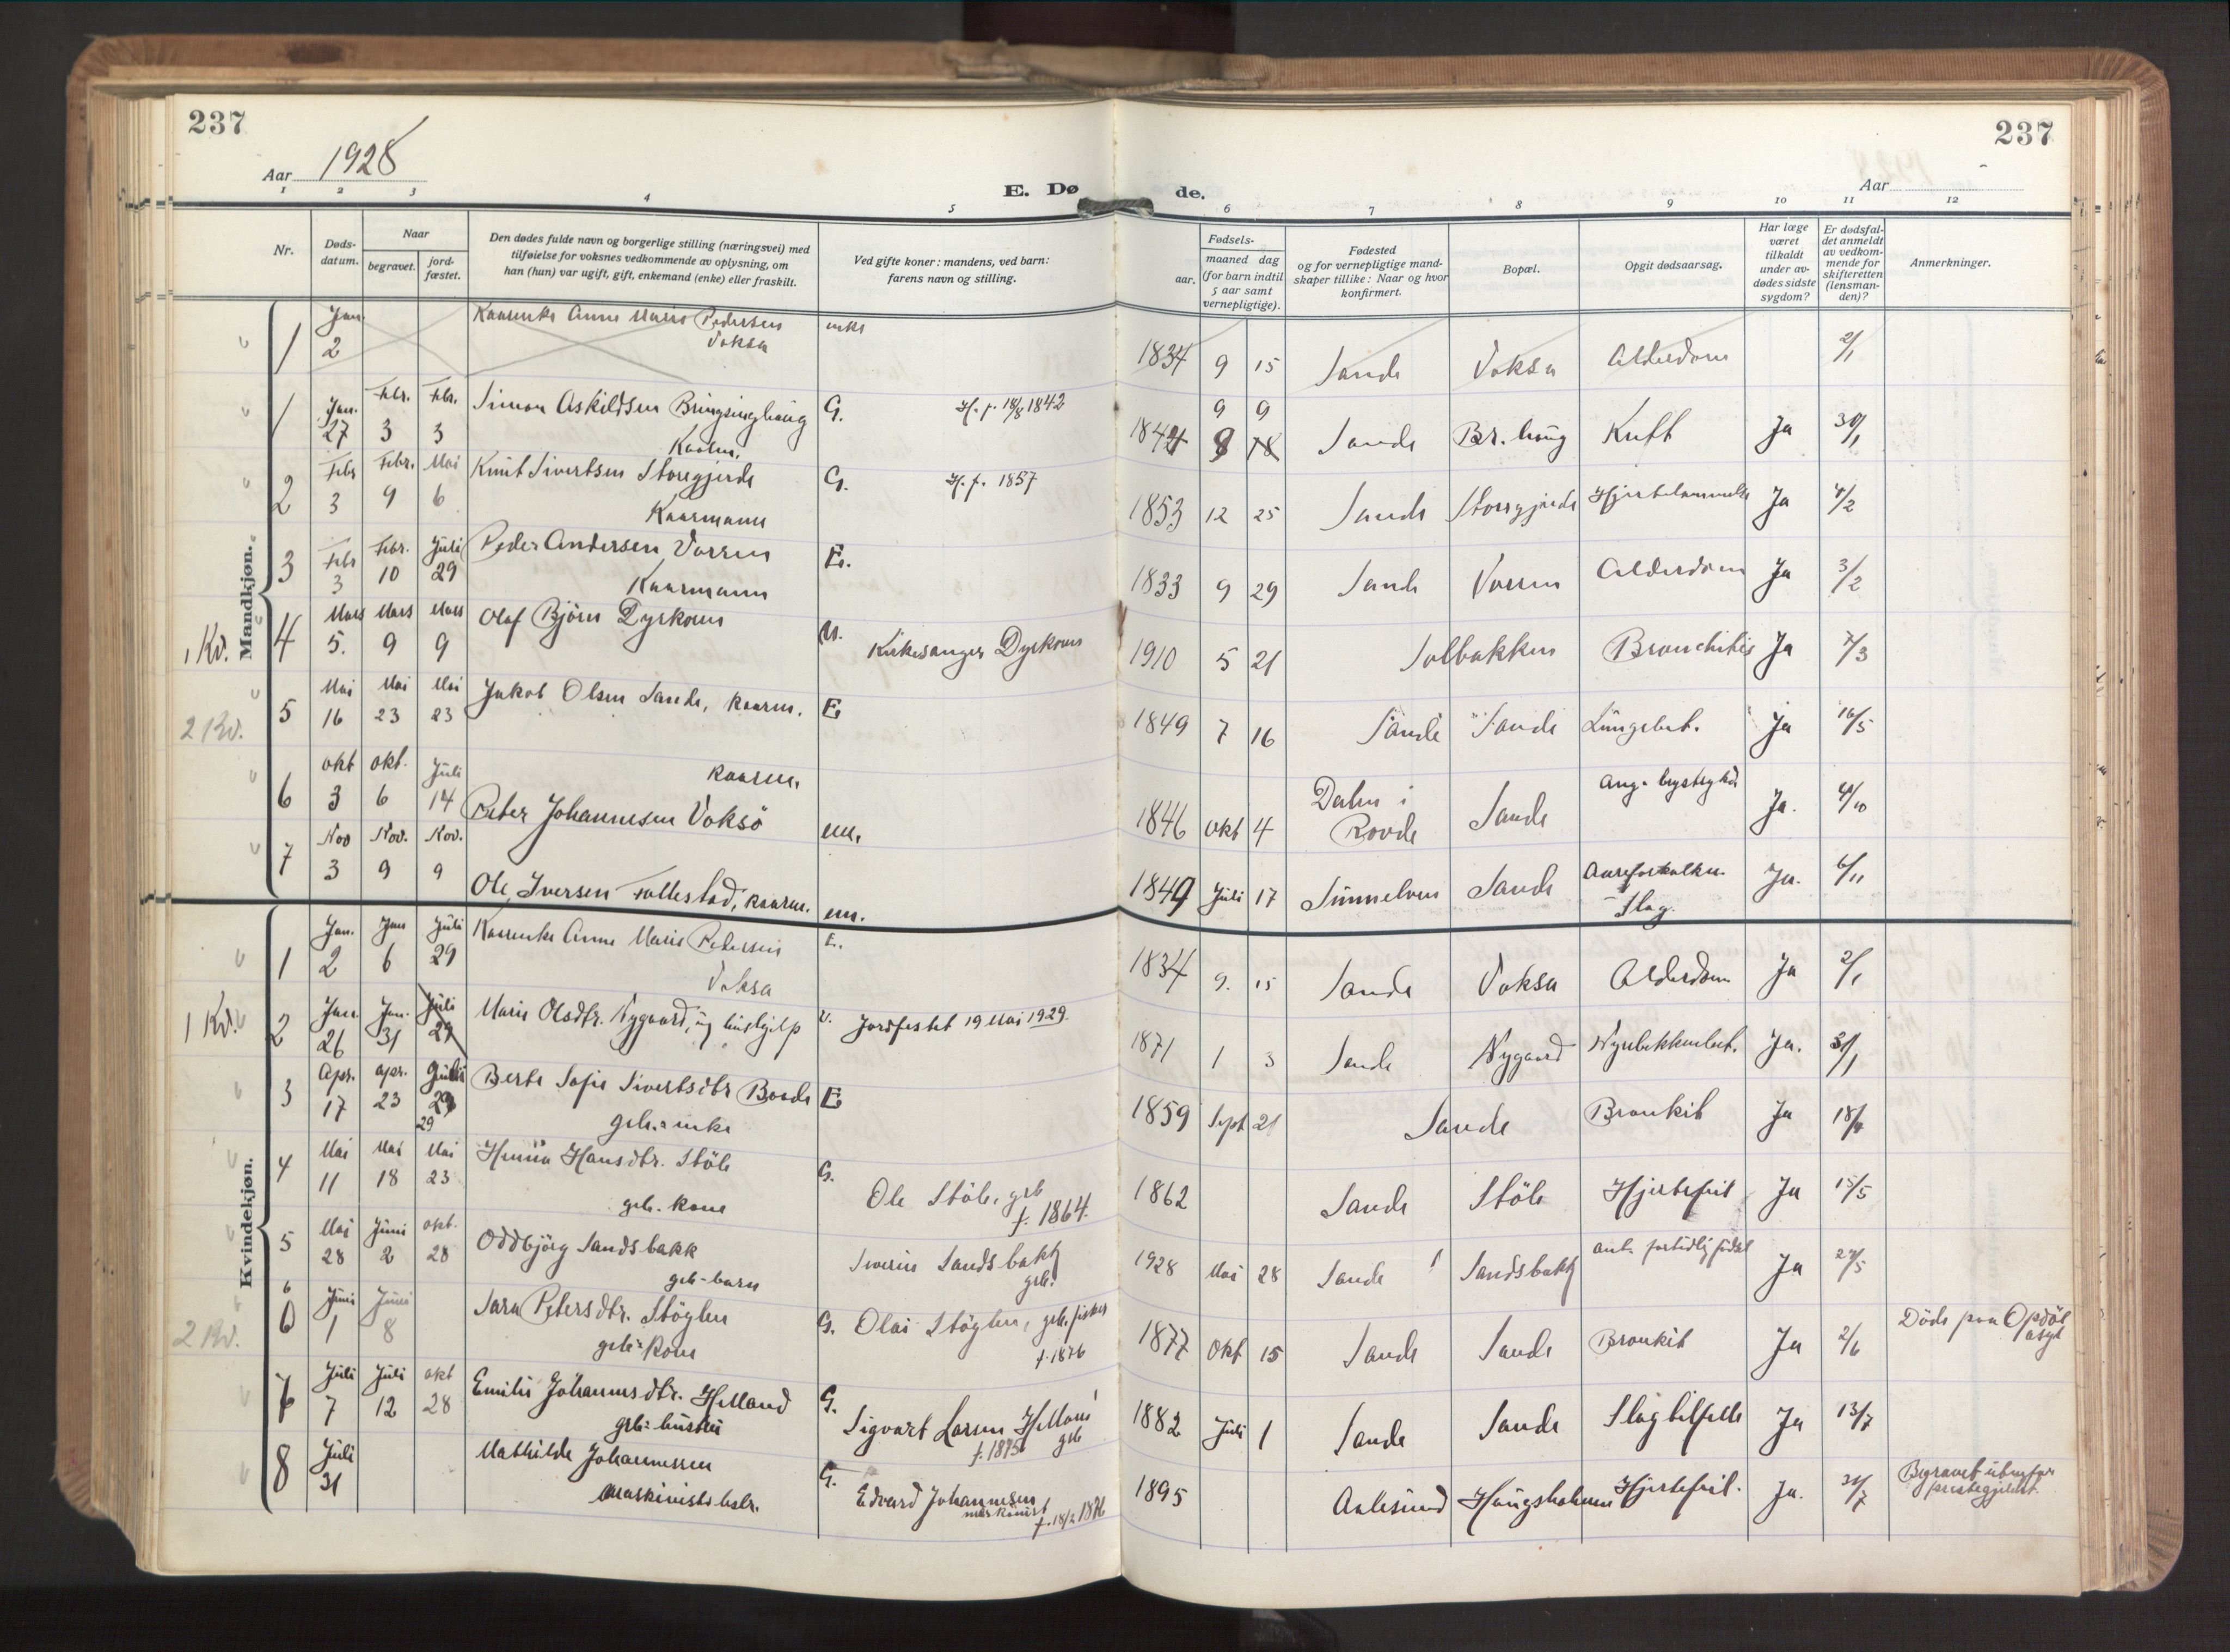 237
237
Aar 1928
Aar
E. Dø de.
1 2 3 4 5 6 7 8 9 10 11 12
Nr.
Døds-
datum.
Naar
begravet.
jord-
fæstet.
Den dødes fulde navn og borgerlige stilling (næringsvei) med
tilføielse for voksnes vedkommende av oplysning, om
han (hun) var ugift, gift, enkemand (enke) eller fraskilt.
Ved gifte koner: mandens, ved barn:
farens navn og stilling.
Fødsels-
aar.
maaned dag
(for barn indtil
5 aar samt
vernepligtige).
Fødested
og for vernepligtige mand-
skaper tillike: Naar og hvor
konfirmert.
Bopæl.
Opgit dødsaarsag.
Har læge
været
tilkaldt
under av-
dødes sidste
sygdom?
Er dødsfal-
det anmeldt
av vedkom-
mende for
skifteretten
(lensman-
den)?
Anmerkninger.
Mandkjøn.
1 Jan. 2 Kaarenke Anne Marie Pedersen
Voksa enke 1834 9 15 Sande Voksa Alderdom 2/1
1 Jan. 27 Febr. 3 Febr. 3 Simon Askildsen Bringsinghaug
Kaarm. G. H. f. 18/8 1842 1844 8 18 9 9 Sande Br. haug Kreft Ja 30/1
2 Febr 3 Febr. 9 Mai 6 Knut Sivertsen Storegjerde
Kaarmann G. H. f. 1857 1853 12 25 Sande Storegjerde Hjertelammelse Ja 4/2
3 Febr 3 Febr. 10 Juli 29 Peder Andersen Vorren
Kaarmann E. 1833 9 29 Sande Vorren Alderdom Ja 3/2
1 Kv. 4 Mars 5. Mars 9 Mars 9 Olaf Björn Dyrkorn U. Kirkesanger Dyrkorn 1910 5 21 Solbakken Bronchitis Ja 7/3
2 Kv. 5 Mai 16 Mai 23 Mai 23 Jakob Olsen Sande, kaarm. E 1849 7 16 Sande Sande Lungebet. Ja 16/5
6 okt 3 okt. 6 Juli 14 kaarm.
Peter Johannesen Voksö em. 1846 okt 4 Dalen i
Rovde Sande Ang. brystsyke Ja. 4/10
7 Nov 3 Nov. 9 Nov. 9 Ole Iversen Follestad, kaarm. em. 1849 Juli 17 Sunnelven Sande Aareforkalkn.
Slag. Ja. 6/11
Kvindekjøn.
1 Jan. 2 Jan 6 Juli 29 Kaarenke Anne Marie Pedersen
Voksa E. 1834 9. 15 Sande Voksa Alderdom Ja 2/1
1 Kv. 2 Jan. 26 Jan. 31 Juli 29 Marie Olsdtr. Nygaard, ug. hushjelp U. Jordfestet 19 Mai 1929. 1871 1 3 Sande Nygaard Nyrebekkenbet. Ja. 31/1
3 Apr. 17 apr. 23 Juli 29 29 Berte Sofie Sivertsdtr Boode
grb.enke E 1859 Sept 21 Sande Bronkit Ja 18/4
4 Mai 11 Mai 18 Mai 23 Hansdtr. Støle
grb. kone G. Ole Støle, grb
f. 1864. 1862 Sande Støle Hjertefeil Ja 15/5
5 Mai 28 Juni 2 okt. 28 Oddbjörg Sandsbakk
grb-barn Sverin Sandsbakk
grb. 1928 Mai 28 Sande Sandsbakk ant. fortidlig födsel Ja 29/5
2 Kv. 6 6 Juni 1 Juni 8 Sara Petersdtr. Stöylen
grb-kone G. Olai Stöylen, grb. fisker
f. 1876 1877 Okt 15 Sande Sande Bronkit Ja 2/6 Döde paa Opdöl
asyl
7 Juli 7 Juli 12 okt 28 Emilie Johannesdtr. Helland
grb-hustru G. Sigvart Larsen Helland
f. 1875 grb 1882 Juli 1 Sande Sande Slagtilfelle Ja 13/7
8 Juli 31 Mathilde Johannessen
Maskinists hstr. G. Edvard Johannesen
maskinist
f. 18/2 1876 1895 Aalesund Haugsholmen Hjertefeil. Ja. 31/7 Begravet utenfor
prestegjeldet.